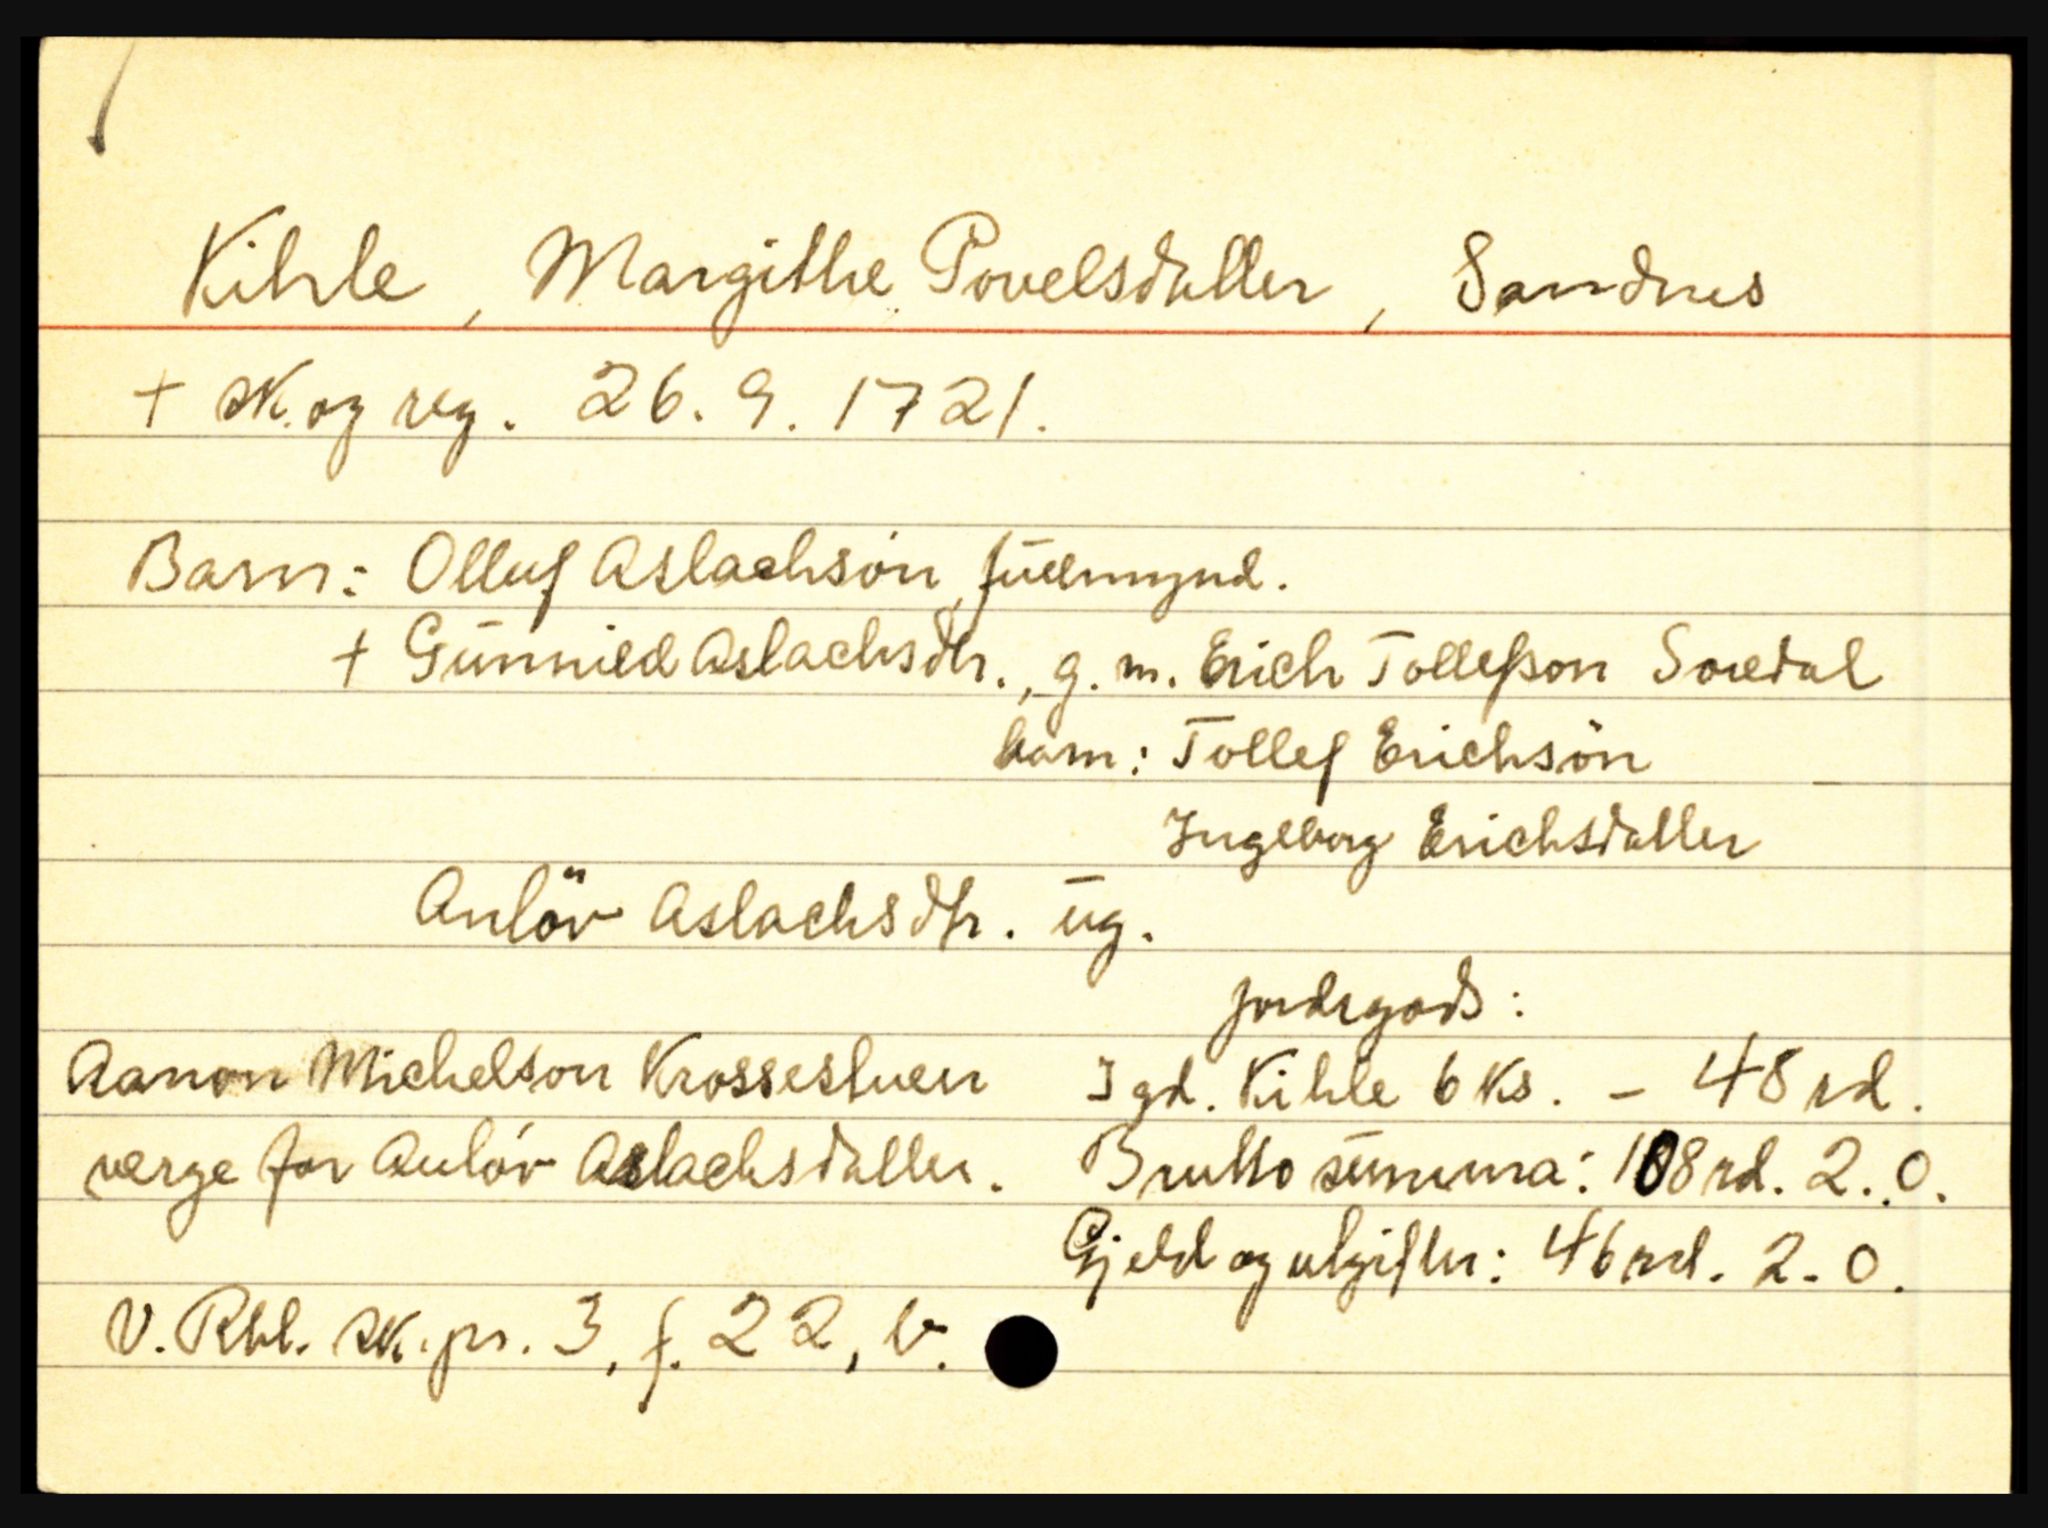 Kihle, Margithe Povelsdatter, Sandnes
+ sk. og reg. 26. 9. 1721.
Barn: Olluf Aslachsön, fullmynd.
+ Gunnild Aslachsdtr., g. m. Erich Tollefson Soredal
barn: Tollef Erichsön
Ingeborg Erichsdatter
Anlöv Aslachsdtr. ug.
Jordegods:
Aanon Michelson Krossesluen
I gd. Kihle 6 ks. - 48 rd.
verge for Aulöv Aslachsdatter.
Brutto summa: 108 rd. 2. 0.
Gjeld og utgifter: 46 rd. 2. 0.
V. Rbl. sk. pr. 3, f. 22, b.